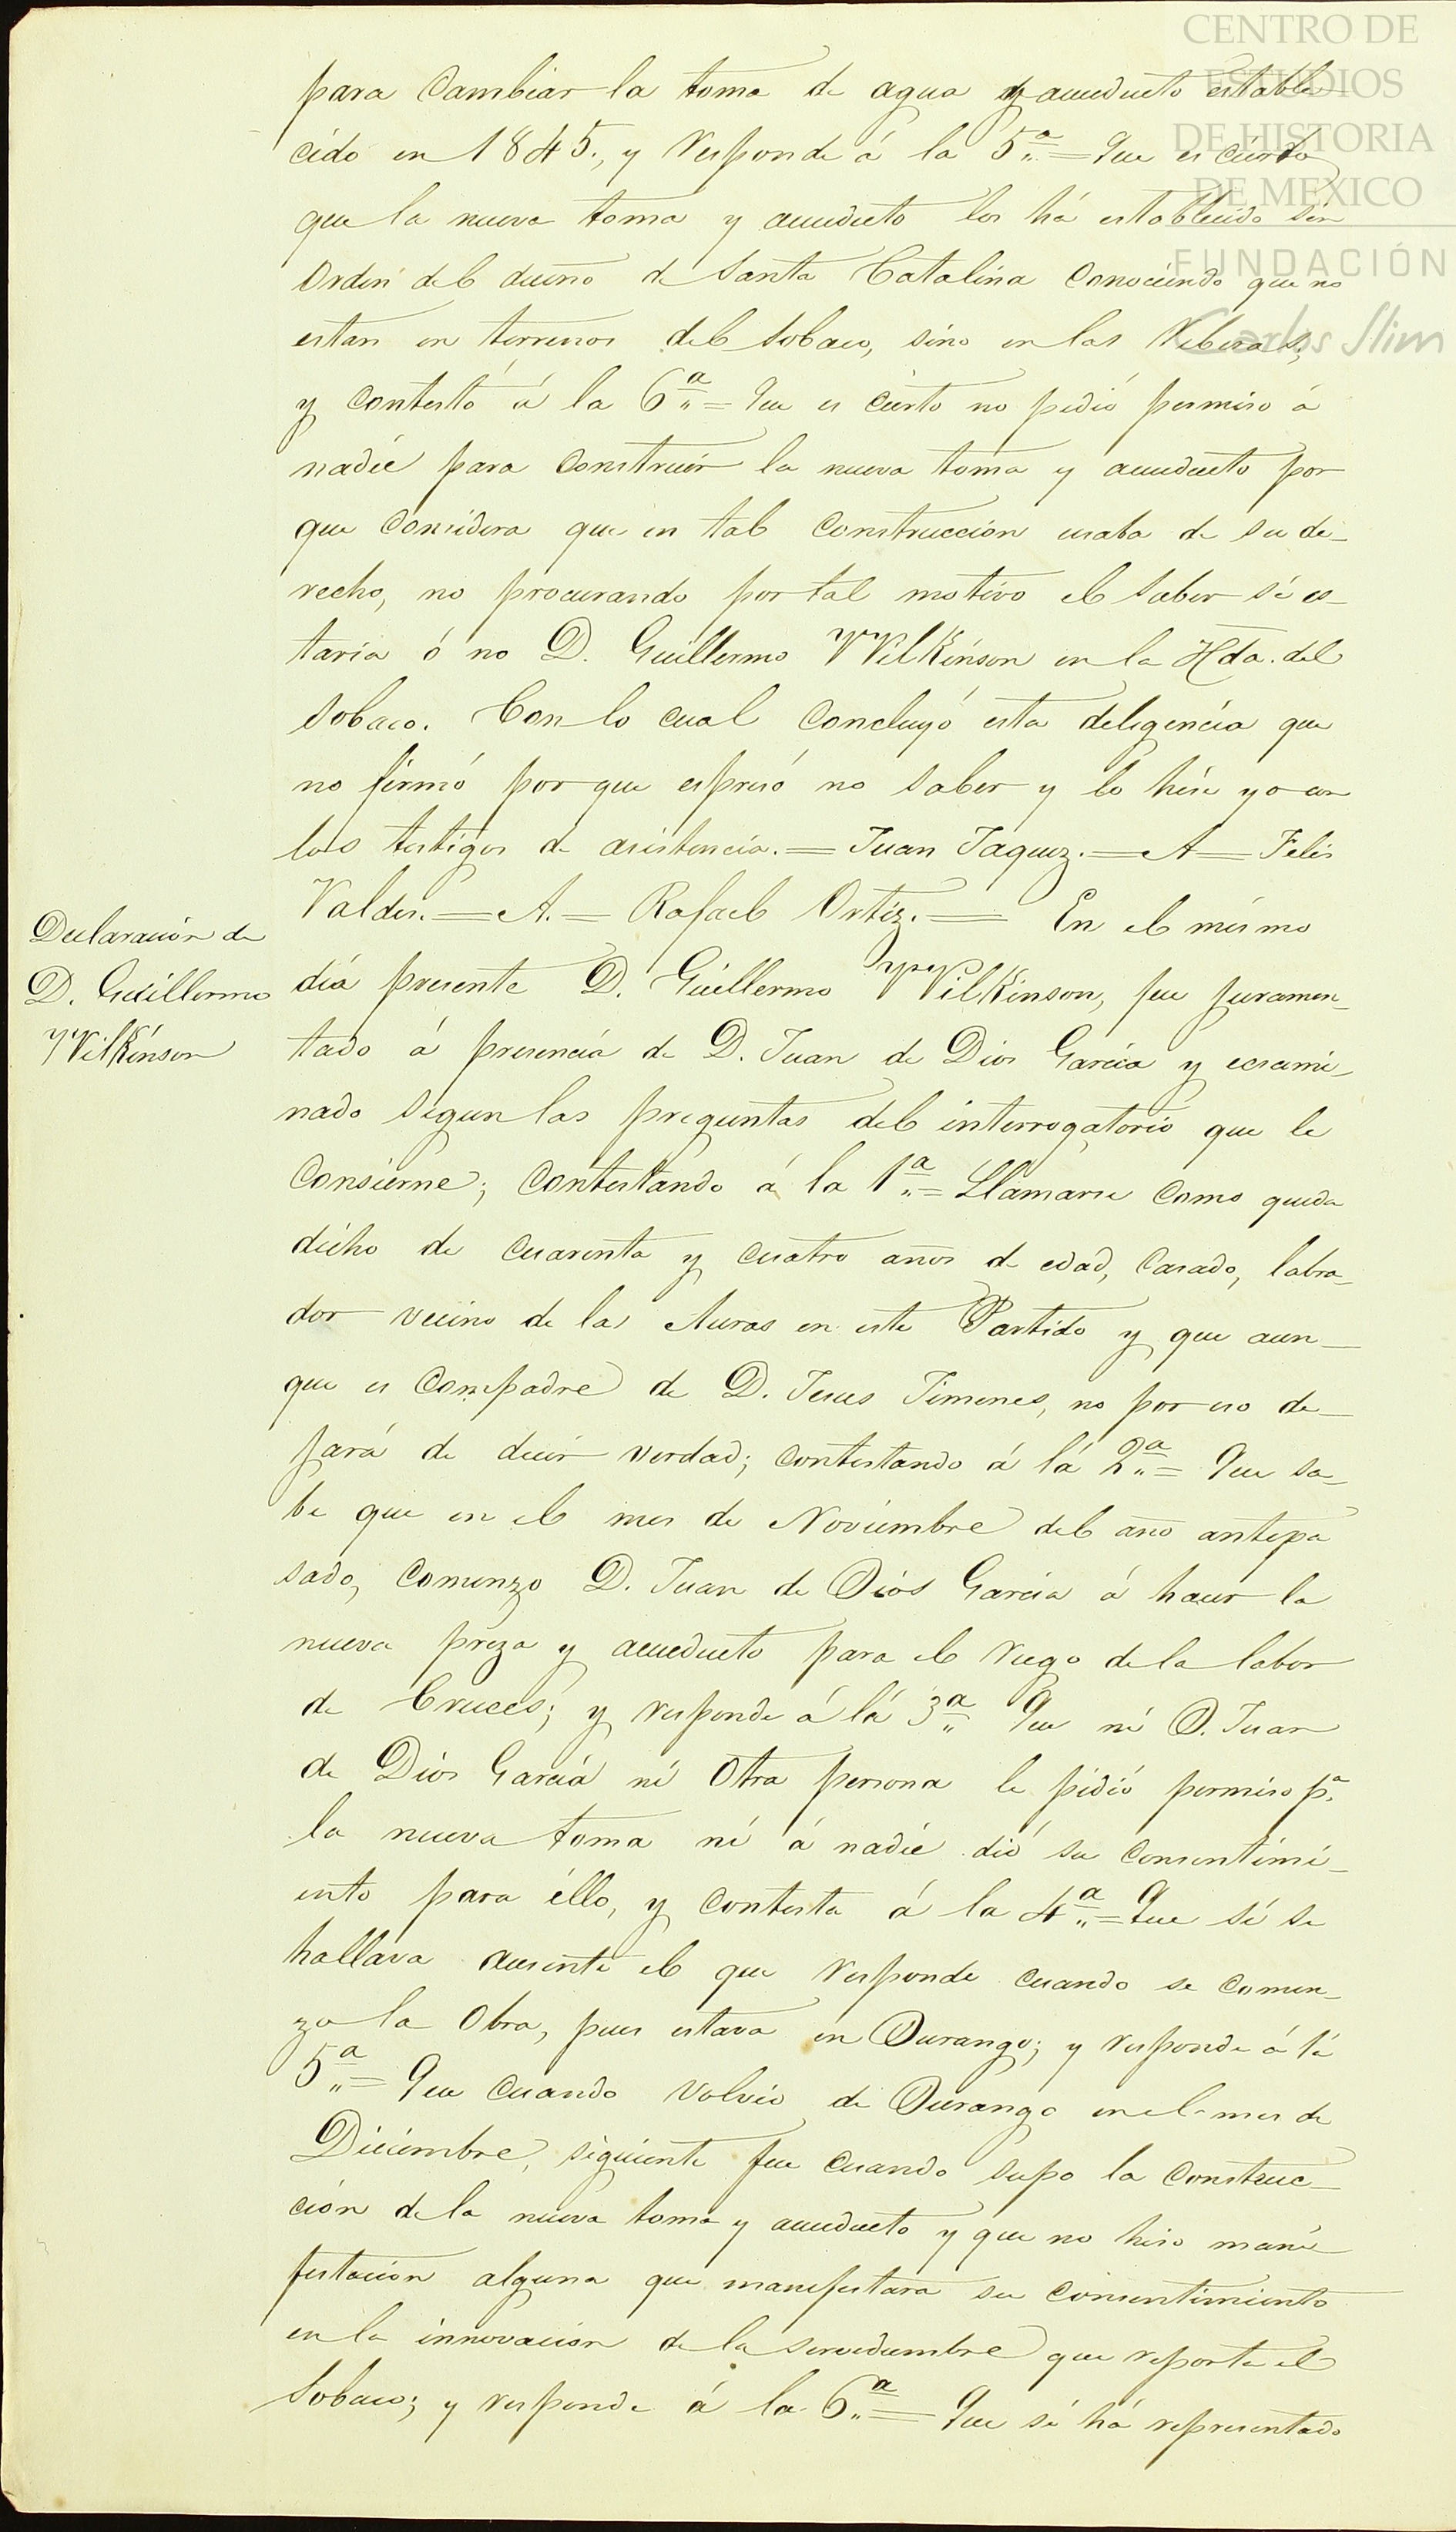 CENTRO DE
ESTUDIOS
DE HISTORIA
DE MEXICO
FUNDACIÓN
Carlos Slim
para Cambiar la toma de agua y acueducto estable
cido en 1845., y responde á la 5.ª = Que es cierto
que la nueva toma y acueducto los há establecido sin
Orden del dueño de Santa Catalina Conociendo que no
estan en terrenos del Sobaco, sino en las Riberas,
y contestó á la 6.ª = Que es cierto no pidió permiso á
nadie para Construir la nueva toma y acueducto por
que Considera que en tal Construcción usaba de su de_
recho, no procurando por tal motivo el Saber sí es_
taria ó no D. Guillermo Wilkinson en la Hda. del
Sobaco. Con lo cual Concluyó esta deligencia que
no firmó por que espresó no Saber y lo hise yo con
los testigos de asistencia. = Juan Jaquez. = A = Felis
Valdes. = A. = Rafael Ortiz. = En el mismo
Declaración de
D. Guillermo
Wilkinson
día presente D. Guillermo Wilkinson, fue juramen_
tado á presencia de D. Juan de Dios García y ecsami_
nado Segun las preguntas del interrogatorio que le
Consierne; Contestando á la 1.ª = Llamarse Como queda
dicho de Cuarenta y Cuatro años de edad, Casado, labra_
dor vecino de las Auras en este Partido y que aun_
que es Compadre de D. Jesus Jimenes, no por eso de_
jará de decir verdad; contestando á lá 2.ª = Que sa_
be que en el mes de Noviembre del año antepa
sado, Comenzo D. Juan de Dios García á hacer la
nueva preza y acueducto para el riego de la labor
de Cruces; y responde á lá 3.ª Que ni D. Juan
de Dios García ni Otra persona le pidió permiso p.ª
la nueva toma ni á nadie dió su Consentimi_
ento para éllo, y contesta á la 4.ª = Que sí se
hallava ausente el que responde cuando se comen_
zo la Obra, pues estava en Durango; y responde á lá
5.ª = Que Cuando Volvió de Durango en el mes de
Diciembre, siguiente fue Cuando Supo la Construc_
ción de la nueva toma y acueducto y que no hiso mani_
festacion alguna que manifestara su Consentimiento
en la innovacion de la servidumbre que reporta el
Sobaco; y responde á la 6.ª = Que sí há representado